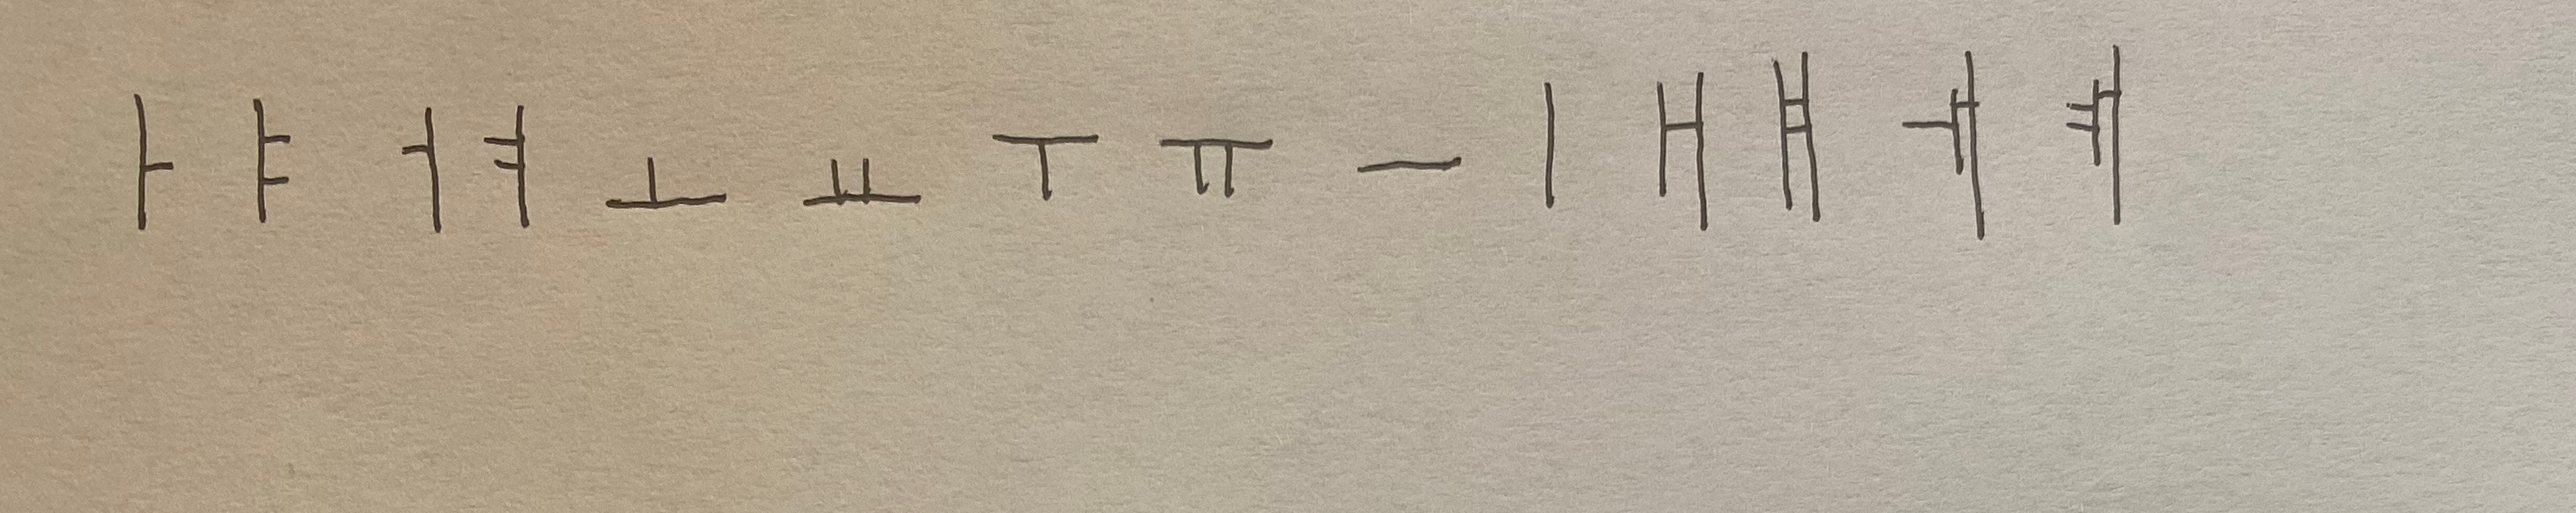 ㅏ ㅑ ㅓ ㅕ ㅗ ㅛ ㅜ ㅠ ㅡ ㅣ ㅐ ㅒ ㅔ ㅖ